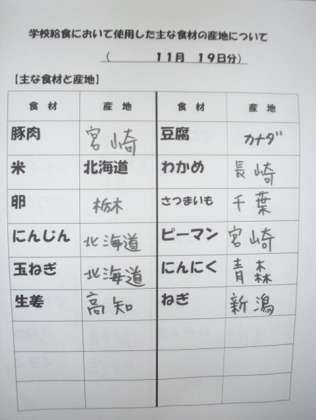 学校給食において使用した主な食材の産地について
( 11月 19日分)
【主な食材と産地】
食材 産地 食材 産地
豚肉 宮崎 豆腐 カナダ
米 北海道 わかめ 長崎
卵 栃木 さつまいも 千葉
にんじん 北海道 ピーマン 宮崎
玉ねぎ 北海道 にんにく 青森
生姜 高知 ねぎ 新潟